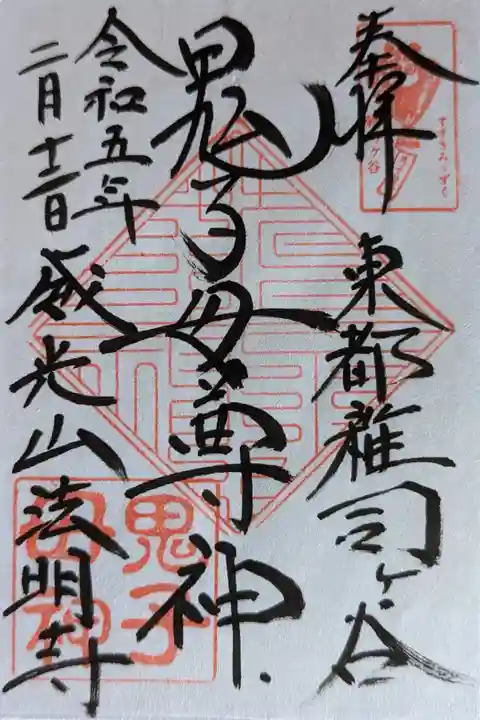 奉拝
東都雑司ヶ谷
鬼子母尊神
令和五年
二月十二日
威光山法明寺
ヶ谷
すすきみみずく
鬼子
母神